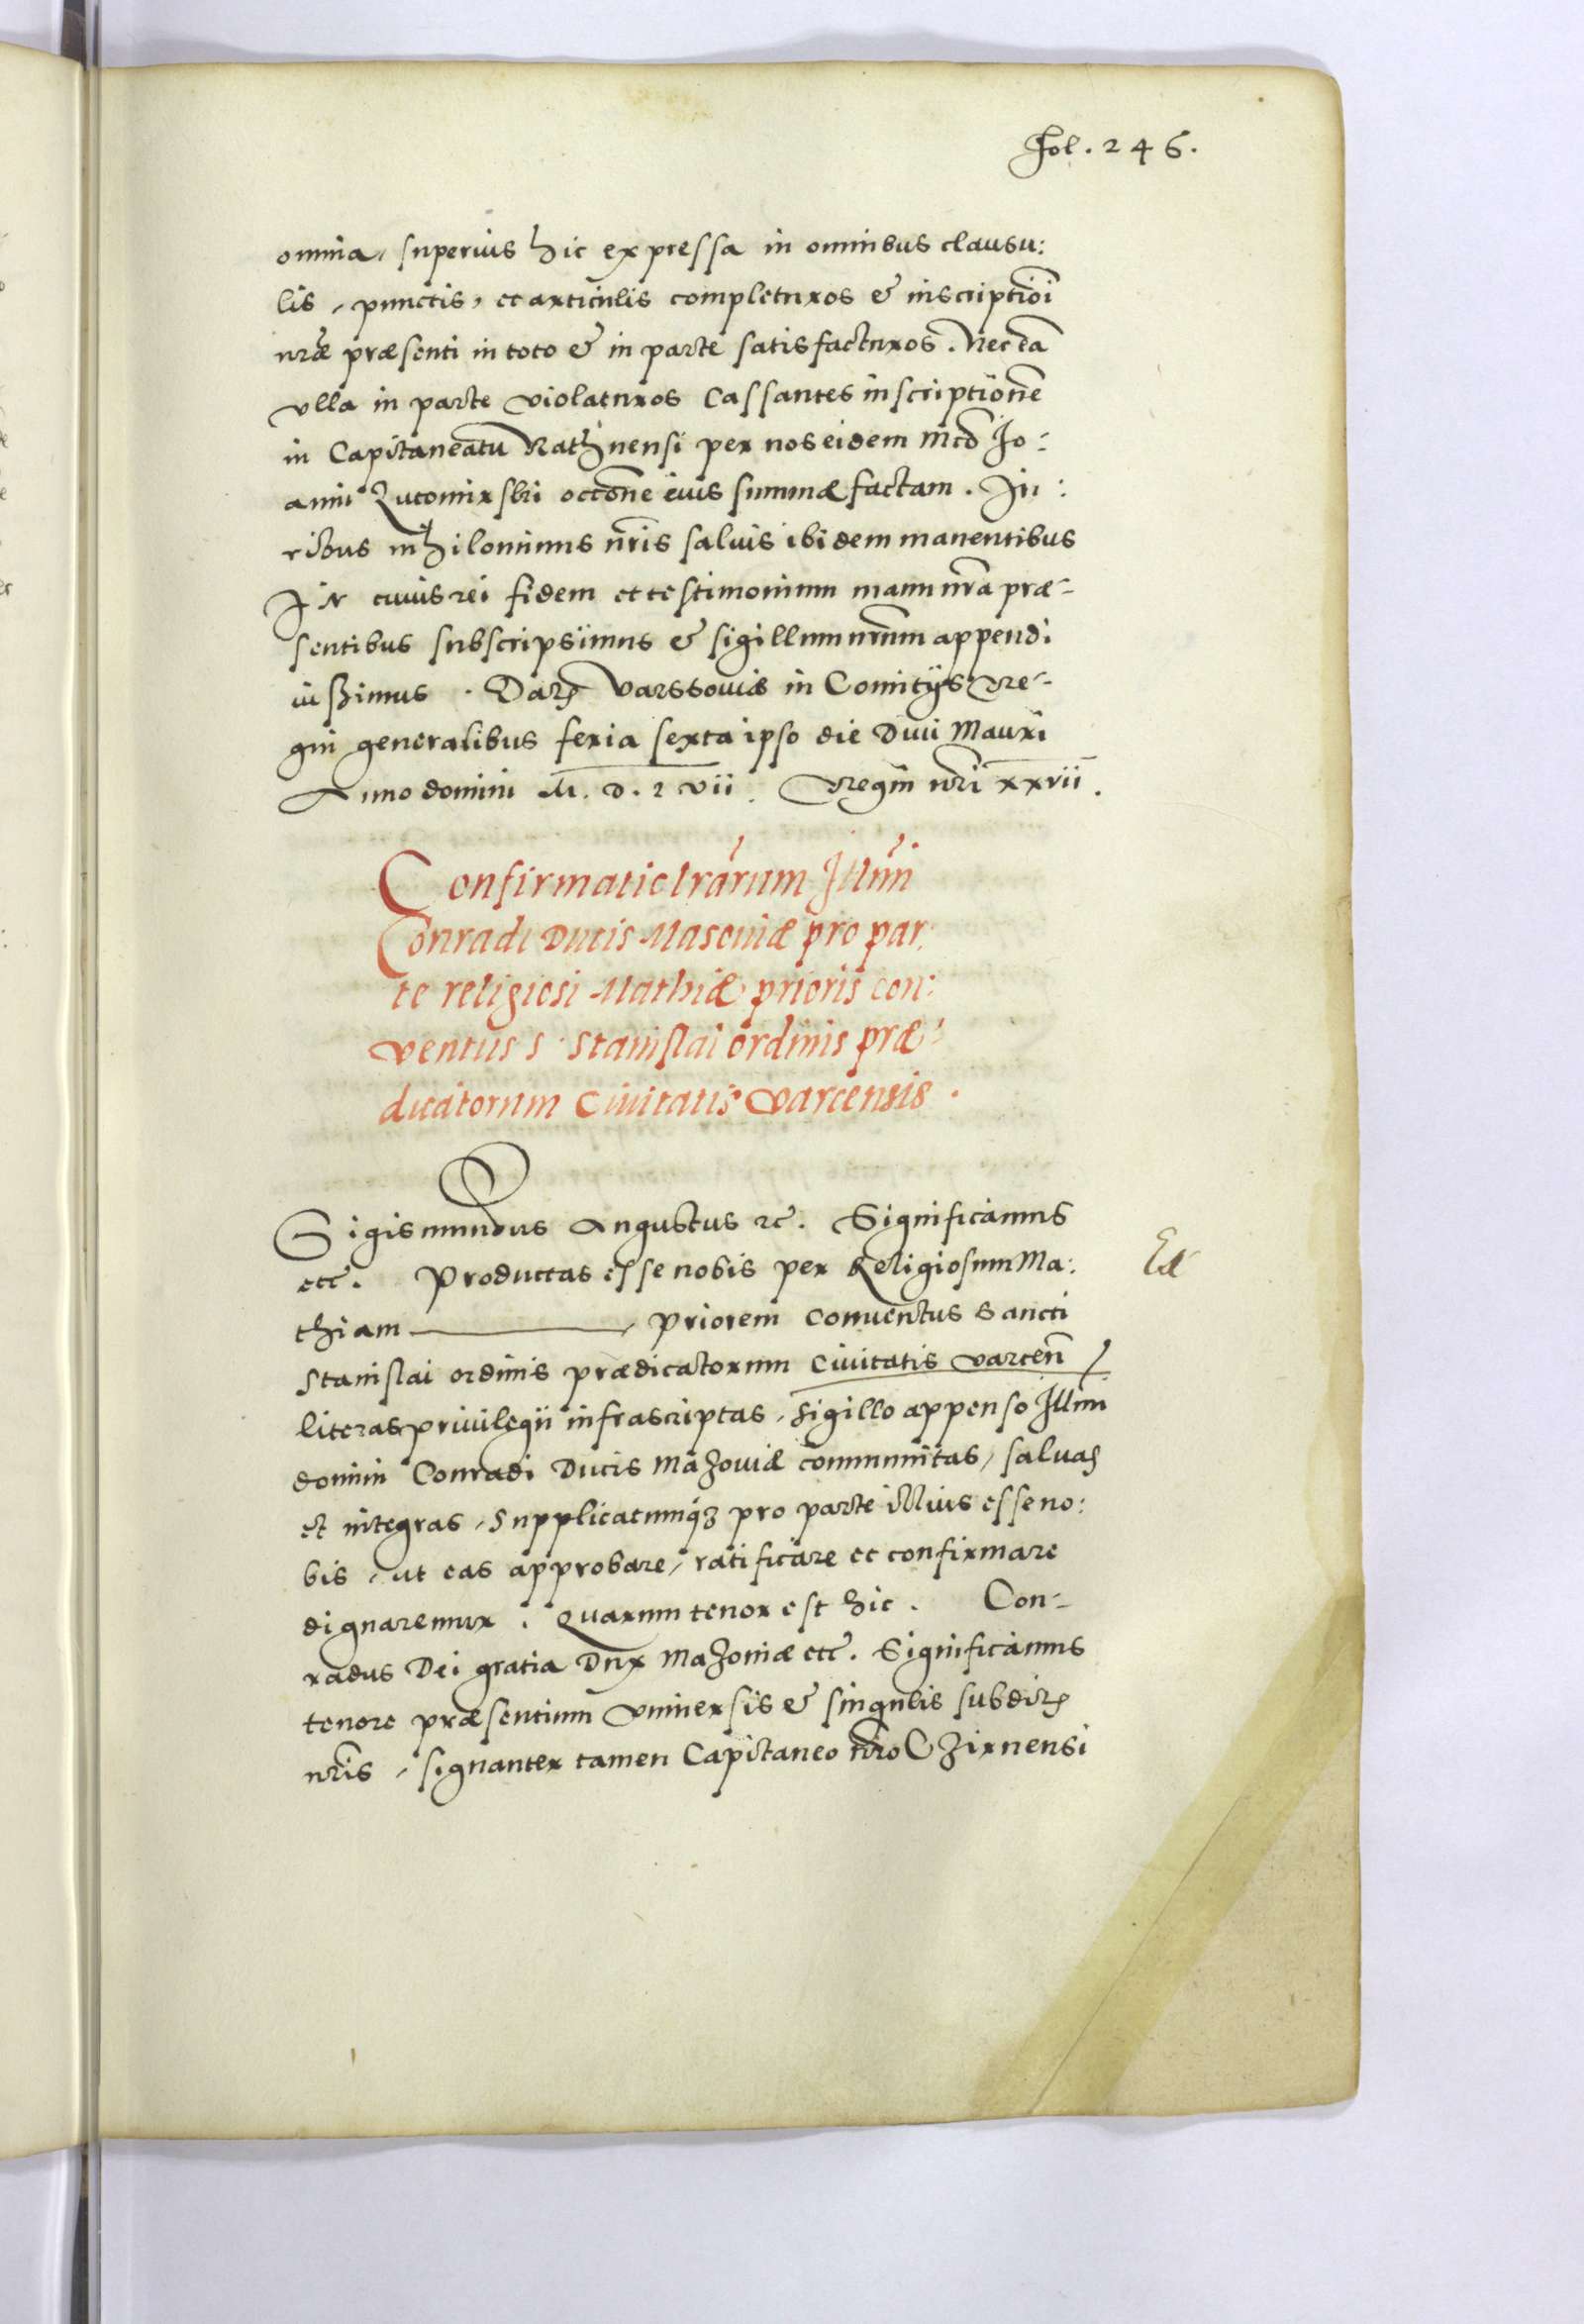 Fol. 246.
omnia, superius hic expressa in omnibus clausu:
lis, punctis, et articulis completuros & inscriptiōi
nr̄æ præsenti in toto & in parte satisfacturos. Nec eā
vlla in parte violaturos Cassantes inscriptionē
in Capitaneatu Rathnensi per nos eidem Mcō Jo:
anni Zutomirski occōne eius summæ factam. Ju:
ribus nihilominus nr̄is saluis ibidem manentibus
IN cuius rei fidem et testimonium manu nr̄a præ-
sentibus subscripsimus & sigillum nr̄um appendi
iussimus. Dat. Varssouiæ in Comitijs Re-
gni generalibus feria sexta ipso die Diui Mauri
Anno domini M. D. L vii. Regni nr̄i xxvii.
Confirmatio lrārum Illmi
Conradi Ducis Masouiæ pro par:
te religiosi Mathiæ prioris con:
uentus S. Stanislai ordinis præ:
dicatorum Ciuitatis Varcensis.
Sigismundus Augustus etc. Significamus
etc. Productas esse nobis per Religiosum Ma:
thiam ——— Priorem Conuentus Sancti
Stanislai ordinis prædicatorum Ciuitatis Varcen̄
literas priuilegii infrascriptas, sigillo appenso Illmi
domini Conradi Ducis Mazouiæ communitas, saluas
et integras, Supplicatumq3 pro parte illius esse no:
bis, ut eas approbare, ratificare et confirmare
dignaremur. Quarum tenor est hic. Con-
radus Dei gratia Dux Mazouiæ etc. Significamus
tenore præsentium Vniuersis & singulis subdit.
nr̄is, signanter tamen Capitaneo nr̄o Czirnensi